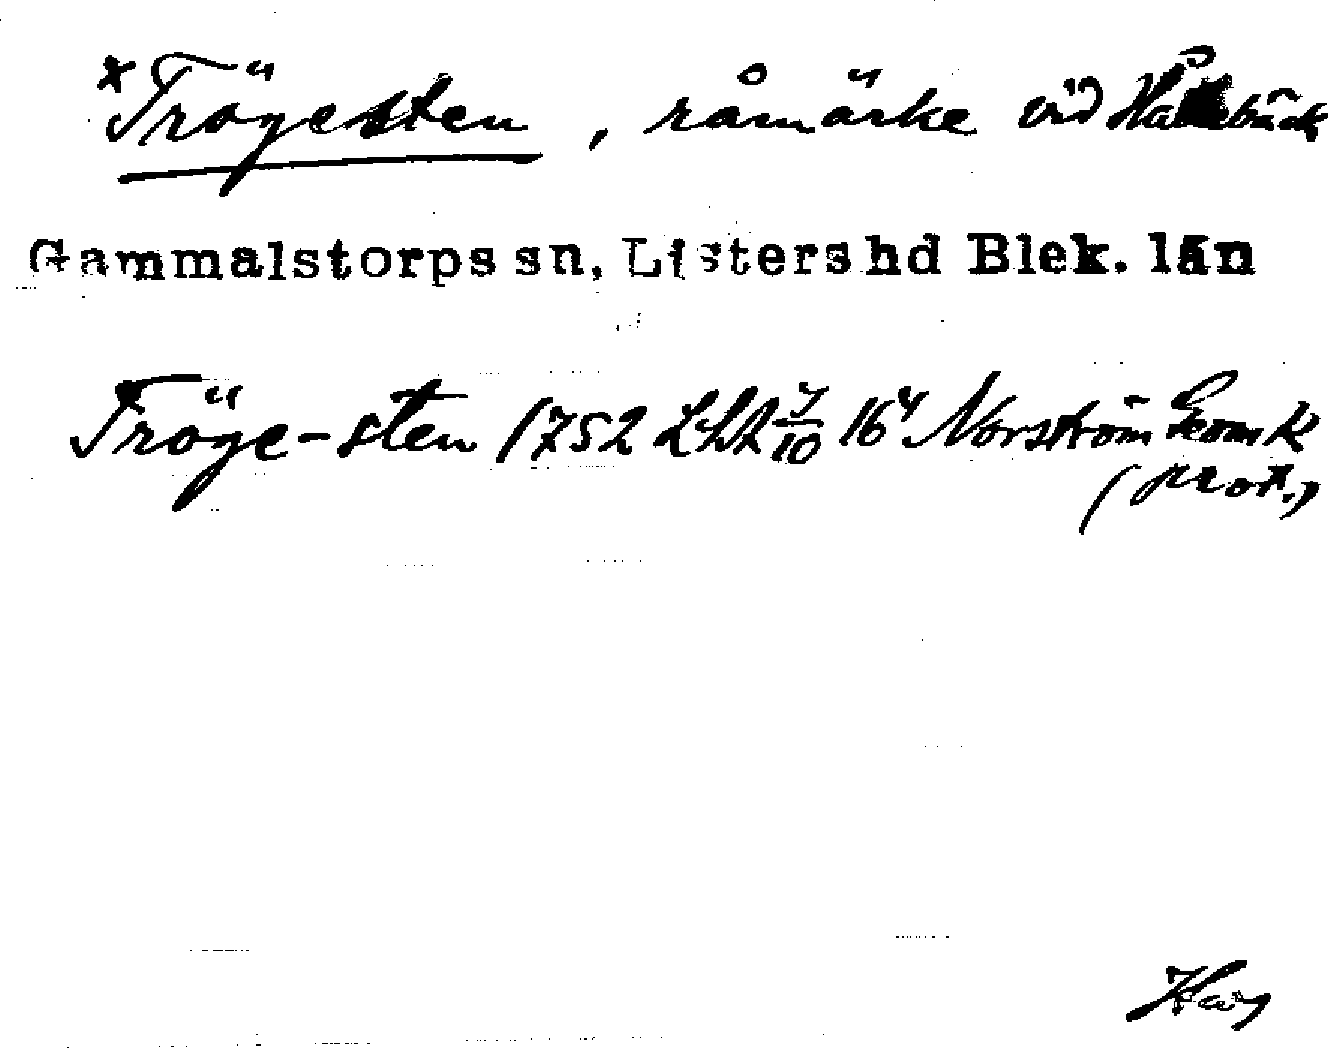 *Trögesten, råmärke vid
Gammalstorps sn, Listers hd Blek. län
Tröge-sten 1752 LSA 7/10 16 4 Norström Geom K
(prot.)